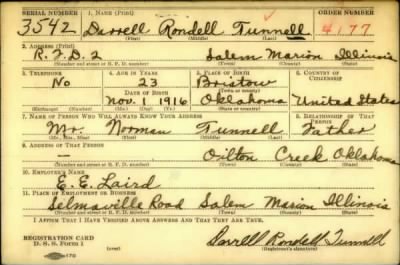 SERIAL NUMBER 1. NAME (Print) ORDER NUMBER
3542 Darrell Rondell Tunnell 4177
(First) (Middle) (Last)
2. ADDRESS (Print)
R.F.D. 2 Salem Marion Illinois
(Number and street or R. F. D. number) (Town) (County) (State)
3. TELEPHONE 4. AGE IN YEARS 5. PLACE OF BIRTH 6. COUNTRY OF CITIZENSHIP
No 23 Bristow
DATE OF BIRTH (Town or county)
Nov. 1, 1916 Oklahoma United States
(Exchange) (Number) (Mo.) (Day) (Yr.) (State or country)
7. NAME OF PERSON WHO WILL ALWAYS KNOW YOUR ADDRESS 8. RELATIONSHIP OF THAT PERSON
Mr. Norman Tunnell Father
(Mr., Mrs., Miss) (First) (Middle) (Last)
9. ADDRESS OF THAT PERSON
— Oilton Creek Oklahoma
(Number and street or R. F. D. number) (Town) (County) (State)
10. EMPLOYER'S NAME
E. E. Laird
11. PLACE OF EMPLOYMENT OR BUSINESS
Selmaville Road Salem Marion Illinois
(Number and street or R. F. D. number) (Town) (County) (State)
I AFFIRM THAT I HAVE VERIFIED ABOVE ANSWERS AND THAT THEY ARE TRUE.
REGISTRATION CARD
D. S. S. Form 1 Darrell Rondell Tunnell
(Registrant's signature)